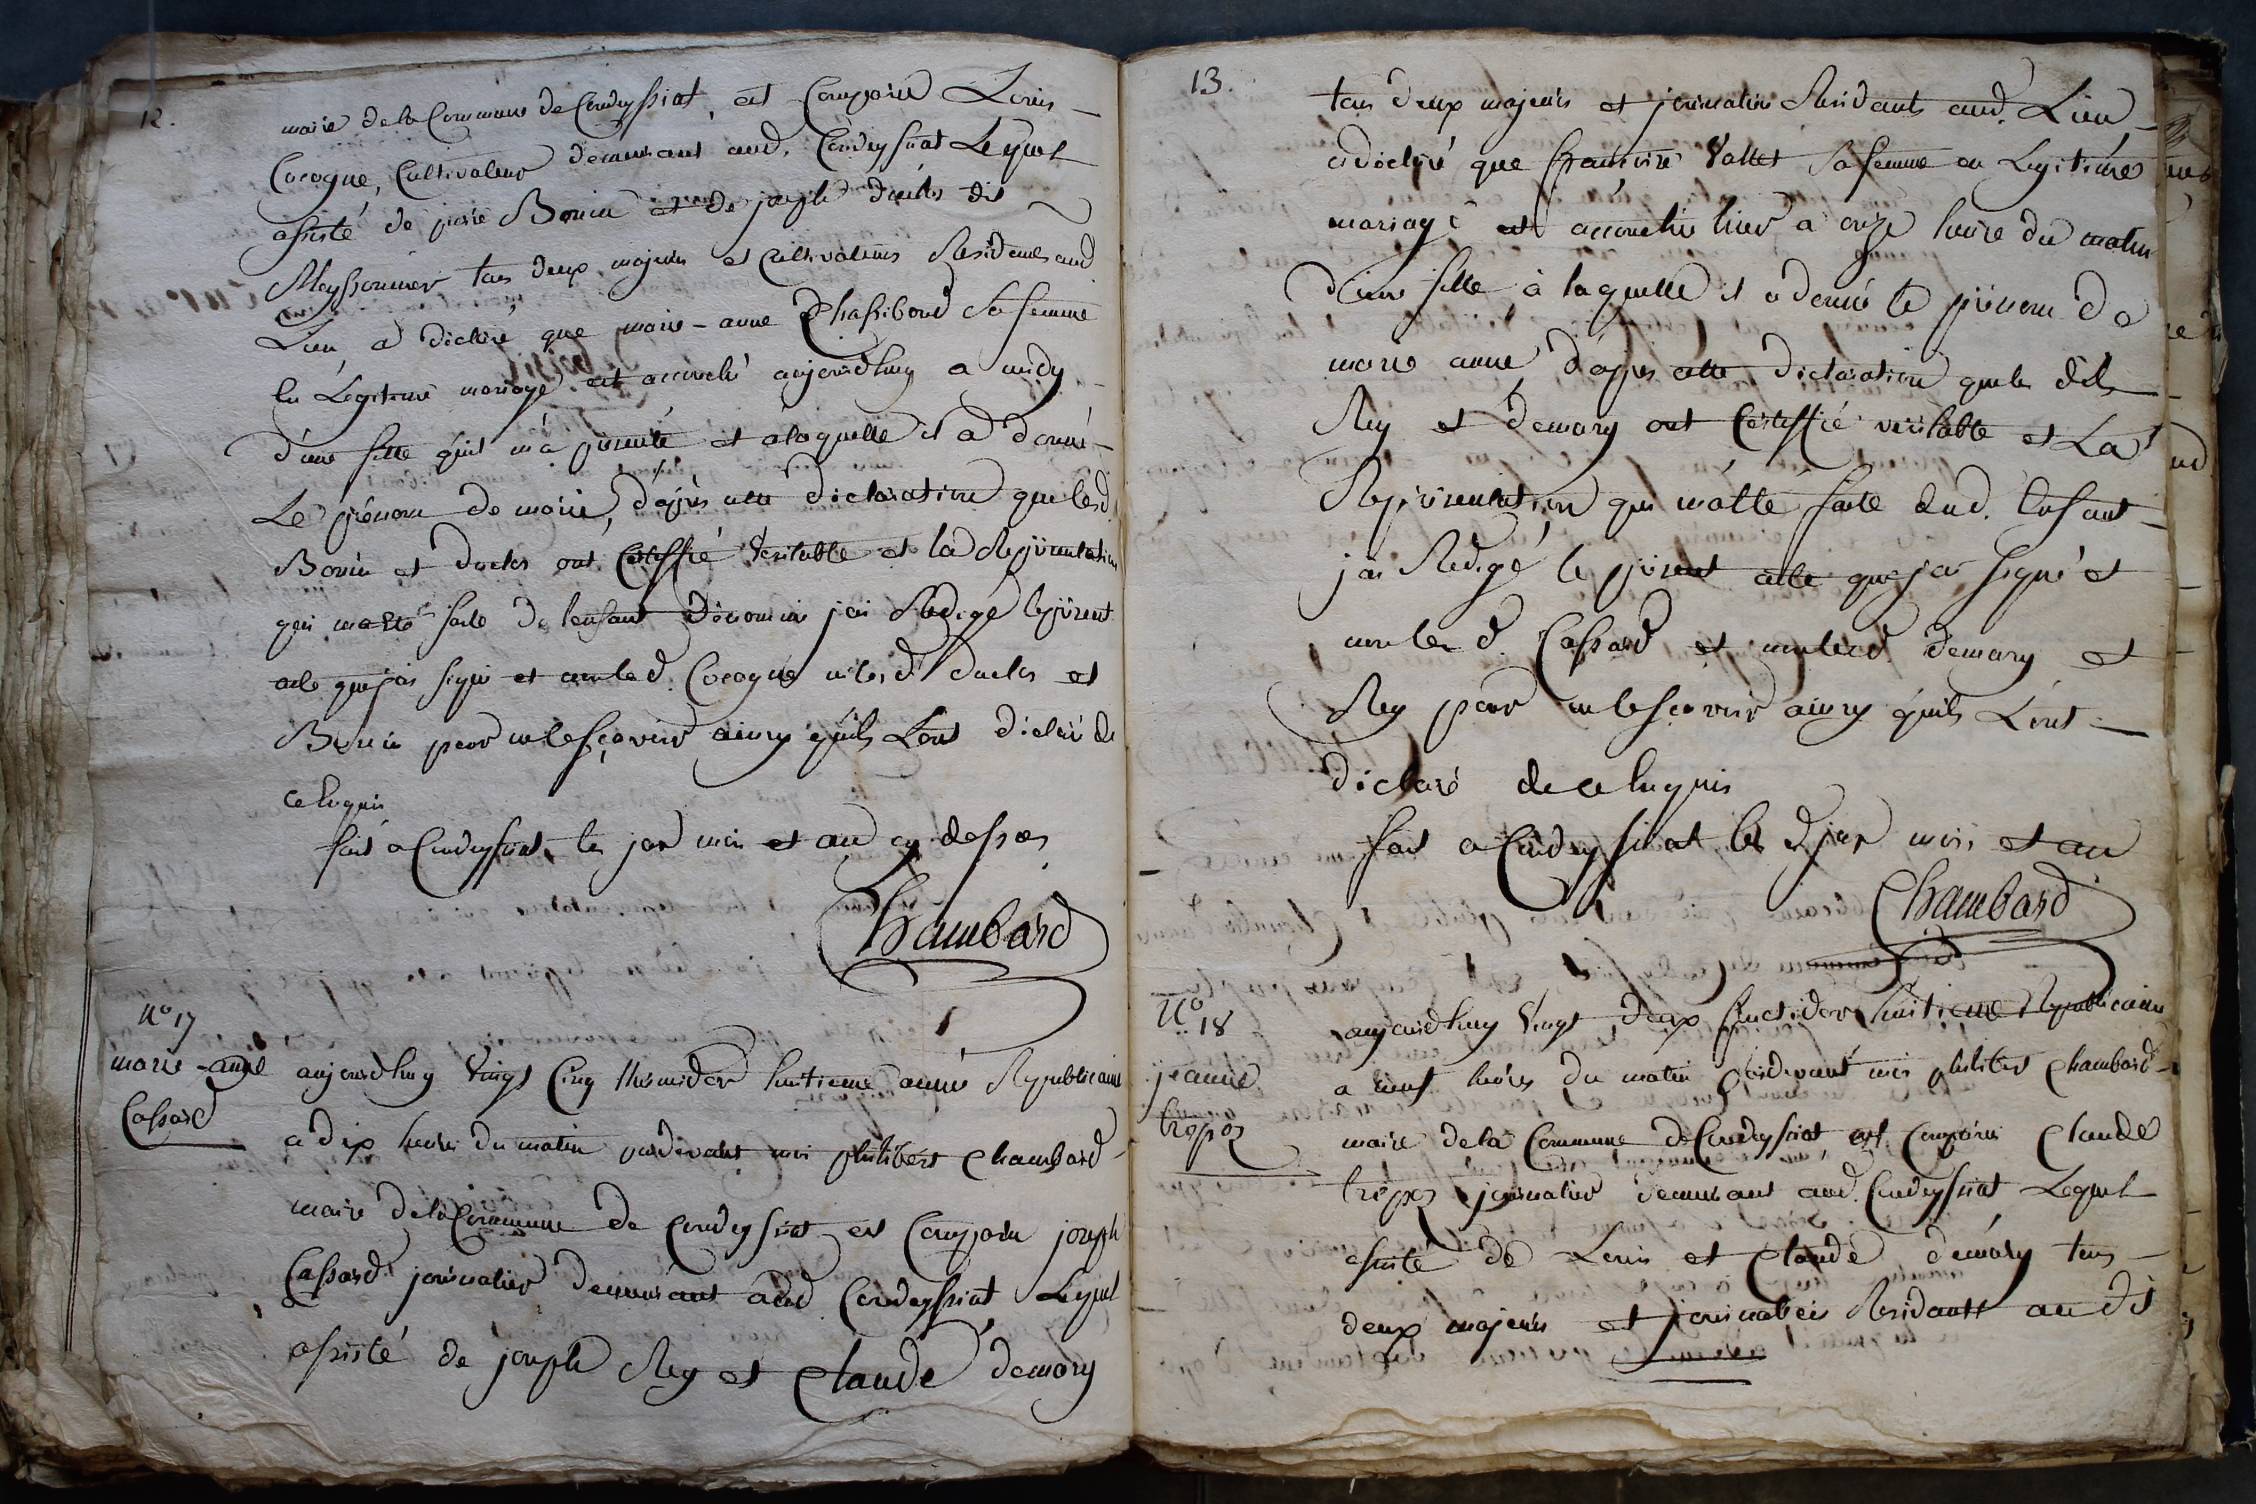 12.
maire de la Commune de Condeyssiat, est Comparu Louis
Cocogne, Cultivateur demeurant aud. Condeyssiat Lequel
assisté de Bouin et de joseph duclos dit
Meyssonnier tous deux majeurs et Cultivateurs Residents aud.
Lieu, a déclaré que marie-anne Chassiboud Sa femme
En Légitime mariage est accouché aujourdhuy a midy
d'une fille qu'il m'a présenté et a laquelle il a donné
Le prénom de marie, d'après cette déclaration que lesd.
Bouin et duclos ont Certiffié Veritable et la Représentation
qui ma été faite de lenfant dénommé jai Rédigé le présent
acte que jai signé et non led. Cocogne ni lesd. duclos et
Bouin pour ne le sçavoir ainsy qu'ils Lont déclaré de
ce Enquis
fait a Condeyssiat, les jour mois et an cy dessus
Chambard
N° 17
marie-anne
Cassard
aujourdhuy Vingt Cinq thermidor huitieme année Républicaine
a dix heures du matin pardevant moi philibert Chambard
maire de la Commune de Condeyssiat est Comparu joseph
Cassard journalier demeurant aud Condeyssiat, Lequel
assisté de joseph Rey et Claude demary
13.
tous deux majeurs et journaliers Résidants aud. Lieu
a déclaré que françoise Vallet Sa femme en Legitime
mariage est accouchée hier a onze heure du matin
d'une fille à laquelle il a donné le prénom de
marie anne d'après cette déclaration que les dits
Rey et demary ont Certiffié véritable et La
Représentation qui m'a été faite dud. Enfant
jai Rédigé le présent acte que j'ai signé et
non led. Cassard et non lesd. demary et
Rey pour ne le sçavoir ainsy qu'ils L'ont
déclaré de ce Enquis
fait a Condeyssiat les d. jour mois et an
Chambard
N° 18
jeanne
trepoz
aujourdhuy Vingt deux fructidor huitieme Républicaine
a neuf heures du matin pardevant moi philibert Chambard
maire de la Commune de Condeyssiat est Comparu Claude
trepoz journalier demeurant aud. Condeyssiat Lequel
assisté de Louis et Claude demary tous
deux majeurs et journaliers Résidants au dit